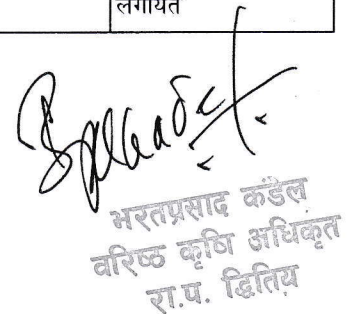 लगायत
भरतप्रसाद कंडेल
वरिष्ठ कृषि अधिकृत
रा.प. द्वितिय